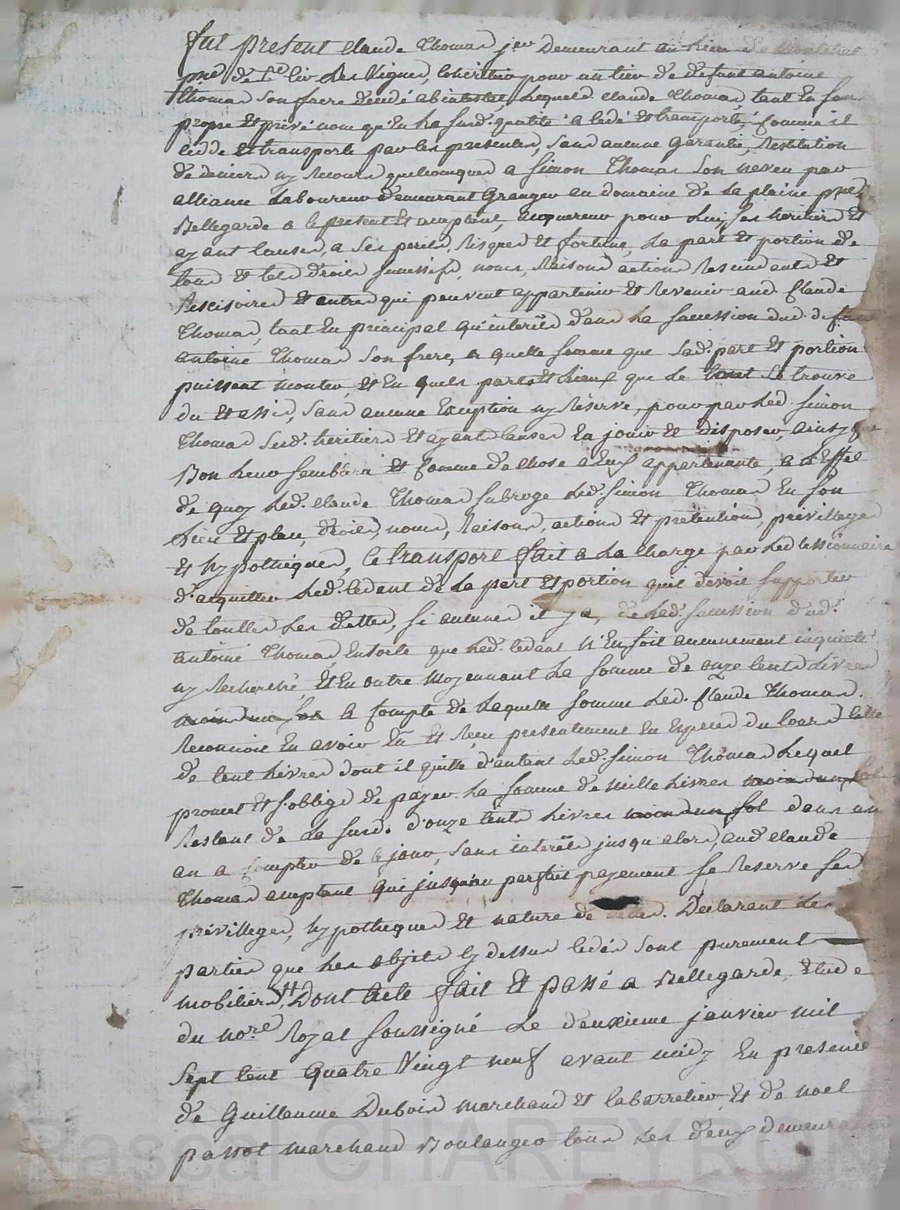 fut present Claude Thomas jeu demeurant au lieu de
psse de St Cir Les Vignes, coheritier pour un tiers de defunt antoine
Thomas son frere decedé abintestat Lequel Claude Thomas tant En son
propre Et privé nom qu'En La susd. qualité a cedé Et transporté, comme il
cedde Et transporte par les presentes, sans aucune garantie, Restitution
de deniers ny Recours quelconques a Simon Thomas son neveu par
alliance Laboureur demeurant Granger au domaine de La plaine psse
Bellegarde a le present Et acceptant, acquereur pour Luy, ses heritiers Et
ayant causes, a ses perils, Risques Et fortune, La part Et portion de
tous Et tels droits successifs, noms, Raisons, actions Rescindants Et
Rescisoires Et autres qui peuvent appartenir Et Revenir aud. Claude
Thomas, tant En principal qu'interêts dans La succession dud. defunt
antoine Thomas son frere, a quelle somme que Lad. part Et portion
puissent monter, Et En quels parts Et Lieux que Le tout se trouve
du Et assis, sans aucune Exception ny Réserve, pour par Led. Simon
Thomas sesd. héritiers Et ayant causes En jouir Et disposer, ainsy que
Bon Leur semblera Et comme de chose a Eux appartenante, a L'Effet
de quoy Led. Claude Thomas subroge Led. Simon Thomas En son
Lieu Et place, droits, noms, Raisons, actions Et prétentions, privilleges
Et hypothéques, Ce transport fait a La charge par Led. cessionnaire
d'acquitter Led. cedant de La part Et portion qu'il devoit supporter
de touttes Les dettes, si aucunes il y a, de Lad. succession dud.
antoine Thomas, Ensorte que Led. cedant N'En soit aucunement inquieté
ny Recherché, Et En outre moyennant La somme de onze cents Livres
moins un sol a compte de Laquelle somme Led. Claude Thomas
Reconnoit En avoir Eu Et Reçu presentement En Especes du cours celle
de cent Livres dont il quitte d'autant Led. Simon Thomas Lequel
promet Et s'oblige de payer La somme de mille Livres moins un sol
Restant de La susd. d'onze cents Livres moins un sol dans un
an a compter de ce jour, sans interêts jusqu'alors, aud. Claude
Thomas acceptant qui jusqu'au parfait payement se Reserve ses
privilleges, hypotheques Et nature de Declarant Les
parties que Les objets cy dessus cedés sont purement
mobiliers, Dont Acte fait Et passé a Bellegarde, Etude
du nore Royal soussigné Le deuxieme janvier mil
sept cent quatre Vingt neuf avant midy En presence
de Guillaume Dubois marchand Et cabarretier Et de noel
passot marchand Boulanger tous Les deux demeurant
Pascal CHAREYRON